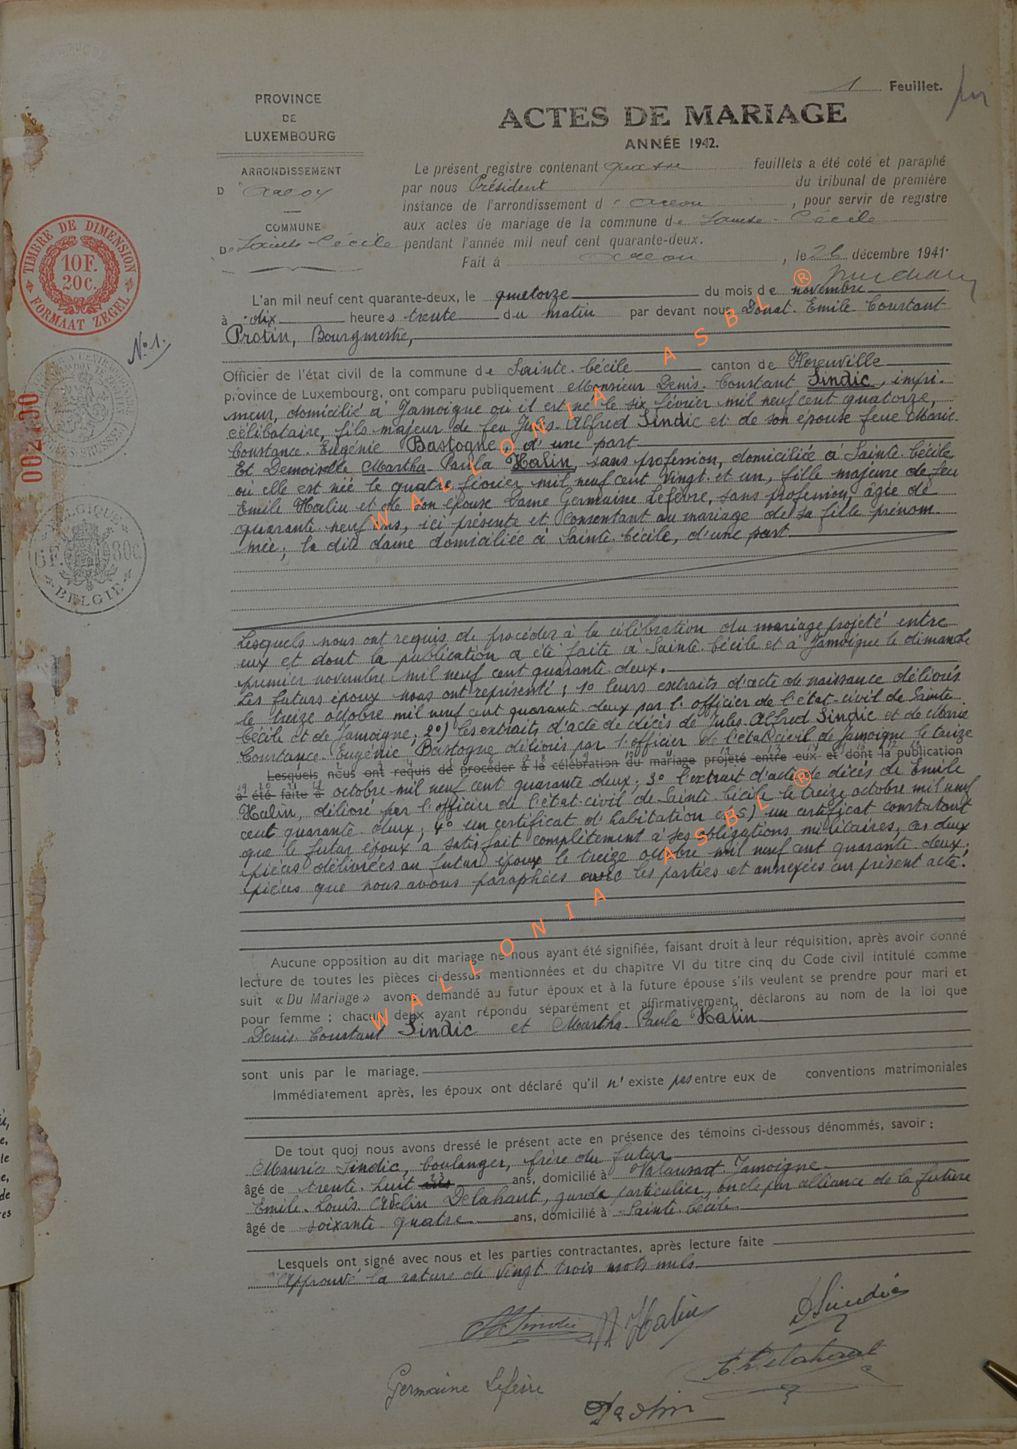 1 Feuillet.
PROVINCE
DE
LUXEMBOURG
ARRONDISSEMENT
D' Arlon
COMMUNE
De Sainte-Cécile
ACTES DE MARIAGE
ANNÉE 1942.
Le présent registre contenant quatre feuillets a été coté et paraphé
par nous Président du tribunal de première
instance de l'arrondissement d' Arlon, pour servir de registre
aux actes de mariage de la commune de Sainte-Cécile
pendant l'année mil neuf cent quarante-deux.
Fait à Arlon, le 26 décembre 1941.
TIMBRE DE DIMENSION
10F.
20C.
FORMAAT ZEGEL
002130
BELGIQUE
6F. 80C
BELGIE
N° 1.
L'an mil neuf cent quarante-deux, le quatorze du mois de novembre
à dix heures trente du matin par devant nous Donat-Emile Constant
Protin, Bourgmestre,
Officier de l'état civil de la commune de Sainte-Cécile canton de Florenville
province de Luxembourg, ont comparu publiquement Monsieur Denis-Constant Sindic, impri-
meur, domicilié à Jamoigne où il est né le six février mil neuf cent quatorze,
célibataire, fils majeur de feu Jules-Alfred Sindic et de son épouse feue Marie
Constance-Eugénie Bastogne, d'une part
Et Demoiselle Martha-Paula Halin, sans profession, domiciliée à Sainte-Cécile
où elle est née le quatre février mil neuf cent vingt et un, fille majeure de feu
Emile Halin et de son épouse Dame Germaine Lefèvre, sans profession, âgée de
quarante neuf ans, ici présente et consentant au mariage de sa fille prénom-
mée; la dite dame domiciliée à Sainte-Cécile, d'une part.
Lesquels nous ont requis de procéder à la célébration du mariage projeté entre
eux et dont la publication a été faite à Sainte-Cécile et à Jamoigne le dimanche
premier novembre mil neuf cent quarante deux.
Les futurs époux nous ont représenté; 1° leurs extraits d'acte de naissance délivrés
le treize octobre mil neuf cent quarante deux par l'officier de l'état-civil de Sainte
Cécile et de Jamoigne; 2°) les extraits d'acte de décès de Jules-Alfred Sindic et de Marie
Constance-Eugénie Bastogne délivrés par l'officier de l'état civil de Jamoigne le treize
Lesquels nous ont requis de procéder à la célébration du mariage projeté entre eux et dont la publication
a été faite à octobre mil neuf cent quarante deux; 3° l'extrait d'acte de décès de Emile
Halin, délivré par l'officier de l'état-civil de Sainte Cécile le treize octobre mil neuf
cent quarante deux, 4° un certificat d'habitation et 5) un certificat constatant
que le futur époux a satisfait complètement à ses obligations militaires, ces deux
pièces délivrées au futur époux le treize octobre mil neuf cent quarante deux;
pièces que nous avons paraphées avec les parties et annexées au présent acte.
Aucune opposition au dit mariage ne nous ayant été signifiée, faisant droit à leur réquisition, après avoir donné
lecture de toutes les pièces ci-dessus mentionnées et du chapitre VI du titre cinq du Code civil intitulé comme
suit « Du Mariage » avons demandé au futur époux et à la future épouse s'ils veulent se prendre pour mari et
pour femme : chacun deux ayant répondu séparément et affirmativement, déclarons au nom de la loi que
Denis-Constant Sindic et Martha-Paula Halin
sont unis par le mariage.
Immédiatement après, les époux ont déclaré qu'il n'existe pas entre eux de conventions matrimoniales
De tout quoi nous avons dressé le présent acte en présence des témoins ci-dessous dénommés, savoir :
Maurice Sindic, boulanger, frère du futur
âgé de trente-huit ans, domicilié à Valansart-Jamoigne
Emile-Louis-Adelin Delahaut, garde particulier, oncle par alliance de la future
âgé de soixante quatre ans, domicilié à Sainte-Cécile.
Lesquels ont signé avec nous et les parties contractantes, après lecture faite
Approuvé la rature de vingt trois mots nuls
M Sindic
M Halin
D Sindic
Germaine Lefèvre
E. Delahaut
Protin
WALLONIA ASBL ®
WALLONIA ASBL ®